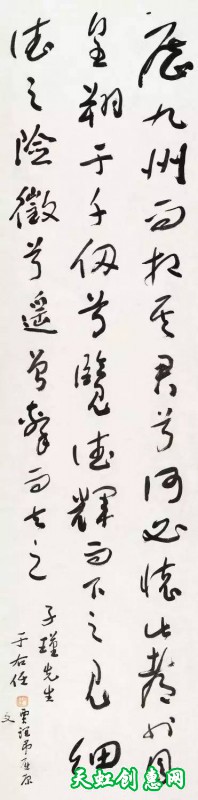 歷九州而相其君兮何必懷此都也鳳
皇翔于千仞兮覽德輝而下之見細
德之險徵兮遙曾擊而去之
子瑾先生
于右任
賈誼弔屈原
文
天虹创意网